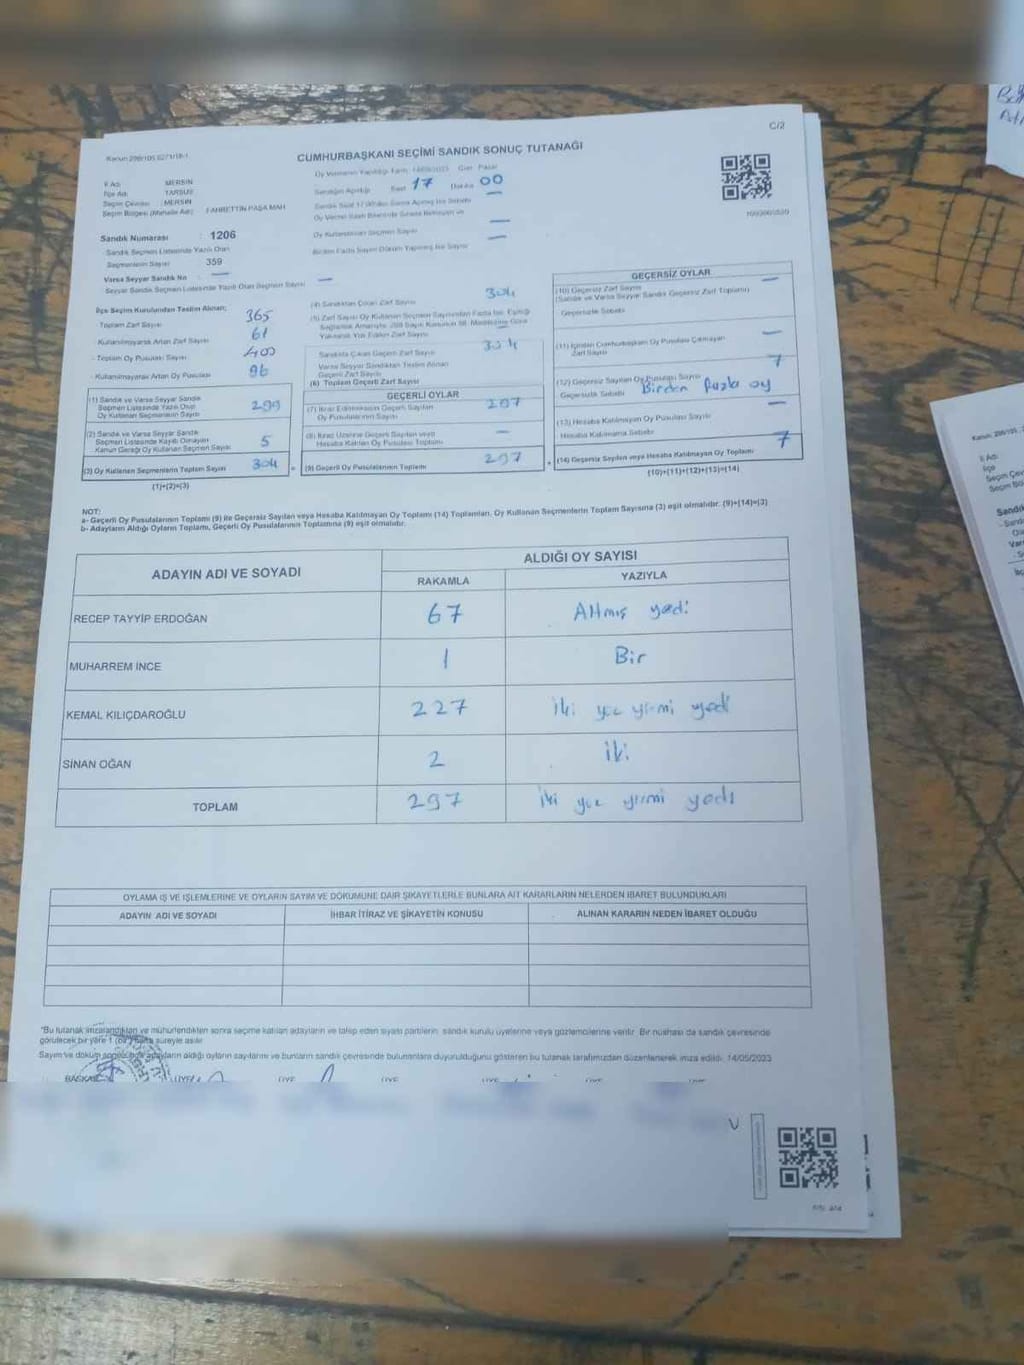 C/2
Kanun 298/105
CUMHURBAŞKANI SEÇİMİ SANDIK SONUÇ TUTANAĞI
Oy Vermenin Yapıldığı Tarih: 14/05/2023 Gün: Pazar
İl Adı : MERSİN
İlçe Adı : TARSUS
Seçim Çevresi : MERSİN
Seçim Bölgesi (Mahalle Adı) : FAHRETTİN PAŞA MAH
Sandığın Açıldığı Saat 17 Dakika 00
Sandık Numarası : 1206
Sandık Seçmen Listesinde Yazılı Olan
Seçmenlerin Sayısı 359
Varsa Seyyar Sandık No —
Seyyar Sandık Seçmen Listesinde Yazılı Olan Seçmen Sayısı —
Oy Kullandırılan Seçmen Sayısı —
Birden Fazla Sayım Döküm Yapılmış İse Sayısı —
İlçe Seçim Kurulundan Teslim Alınan;
Toplam Zarf Sayısı 365
Kullanılmayarak Artan Zarf Sayısı 61
- Toplam Oy Pusulası Sayısı 400
- Kullanılmayarak Artan Oy Pusulası 96
(1) Sandık ve Varsa Seyyar Sandık
Seçmen Listesinde Yazılı Olan
Oy Kullanan Seçmenlerin Sayısı 299
(2) Sandık ve Varsa Seyyar Sandık
Seçmen Listesinde Kayıtlı Olmayan
Kanun Gereği Oy Kullanan Seçmen Sayısı 5
(3) Oy Kullanan Seçmenlerin Toplam Sayısı 304
(1)+(2)=(3)
(4) Sandıktan Çıkan Zarf Sayısı 304
Sandıkta Çıkan Geçerli Zarf Sayısı 304
Varsa Seyyar Sandıktan Teslim Alınan
Geçerli Zarf Sayısı
(6) Toplam Geçerli Zarf Sayısı
GEÇERLİ OYLAR
(7) İtiraz Edilmeksizin Geçerli Sayılan
Oy Pusulalarının Sayısı 297
(8) İtiraz Üzerine Geçerli Sayılan veya
Hesaba Katılan Oy Pusulası Toplamı —
(9) Geçerli Oy Pusulalarının Toplamı 297
GEÇERSİZ OYLAR
(10) Geçersiz Zarf Sayısı —
(Sandık ve Varsa Seyyar Sandık Geçersiz Zarf Toplamı)
Geçersizlik Sebebi
(11) İçinden Cumhurbaşkanı Oy Pusulası Çıkmayan
Zarf Sayısı —
(12) Geçersiz Sayılan Oy Pusulası Sayısı 7
Geçersizlik Sebebi Birden fazla oy
(13) Hesaba Katılmayan Oy Pusulası Sayısı —
Hesaba Katılmama Sebebi
(14) Geçersiz Sayılan veya Hesaba Katılmayan Oy Toplamı 7
(10)+(11)+(12)+(13)=(14)
NOT:
a- Geçerli Oy Pusulalarının Toplamı (9) ile Geçersiz Sayılan veya Hesaba Katılmayan Oy Toplamı (14) Toplamları, Oy Kullanan Seçmenlerin Toplam Sayısına (3) eşit olmalıdır. (9)+(14)=(3)
b- Adayların Aldığı Oyların Toplamı, Geçerli Oy Pusulalarının Toplamına (9) eşit olmalıdır.
ADAYIN ADI VE SOYADI
ALDIĞI OY SAYISI
RAKAMLA YAZIYLA
RECEP TAYYİP ERDOĞAN 67 Altmış yedi
MUHARREM İNCE 1 Bir
KEMAL KILIÇDAROĞLU 227 iki yüz yirmi yedi
SİNAN OĞAN 2 iki
TOPLAM 297 iki yüz yirmi yedi
OYLAMA İŞ VE İŞLEMLERİNE VE OYLARIN SAYIM VE DÖKÜMÜNE DAİR ŞİKAYETLERLE BUNLARA AİT KARARLARIN NELERDEN İBARET BULUNDUKLARI
ADAYIN ADI VE SOYADI İHBAR İTİRAZ VE ŞİKAYETİN KONUSU ALINAN KARARIN NEDEN İBARET OLDUĞU
"Bu tutanak imzalandıktan ve mühürlendikten sonra seçime katılan adayların ve talep eden siyasi partilerin sandık kurulu üyelerine veya gözlemcilerine verilir. Bir nüshası da sandık çevresinde
görülecek bir yere 1 (bir) hafta süreyle asılır.
Sayım ve döküm sonucunda adayların aldığı oyların sayılarını ve bunların sandık çevresinde bulunanlara duyurulduğunu gösteren bu tutanak tarafımızdan düzenlenerek imza edildi. 14/05/2023
BAŞKAN ÜYE ÜYE ÜYE ÜYE ÜYE